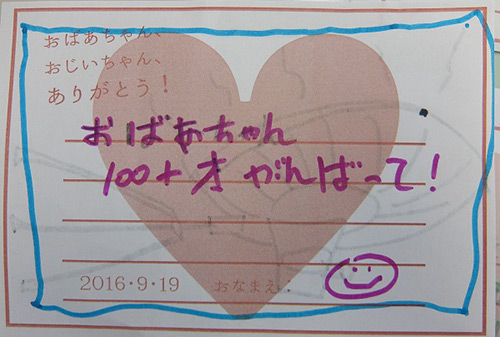 おばあちゃん、
おじいちゃん、
ありがとう！
おばあちゃん
100+才がんばって！
2016・9・19 おなまえ：